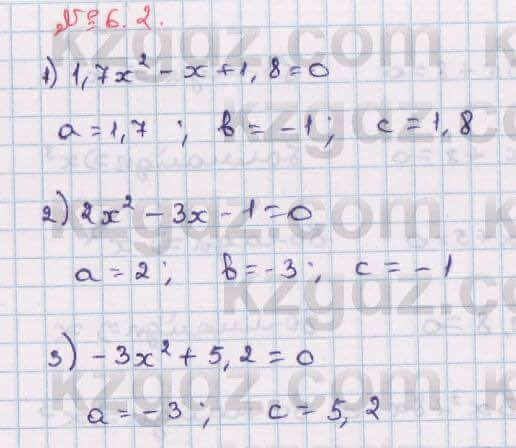 № 6.2.
kzgdz.com
1) 1,7x² - x + 1,8 = 0
a = 1,7 ; b = -1 ; c = 1,8
2) 2x² - 3x - 1 = 0
kzgdz.com
a = 2 ; b = -3 ; c = -1
kzgdz.com
3) -3x² + 5,2 = 0
kzgdz.com
a = -3 ; c = 5,2